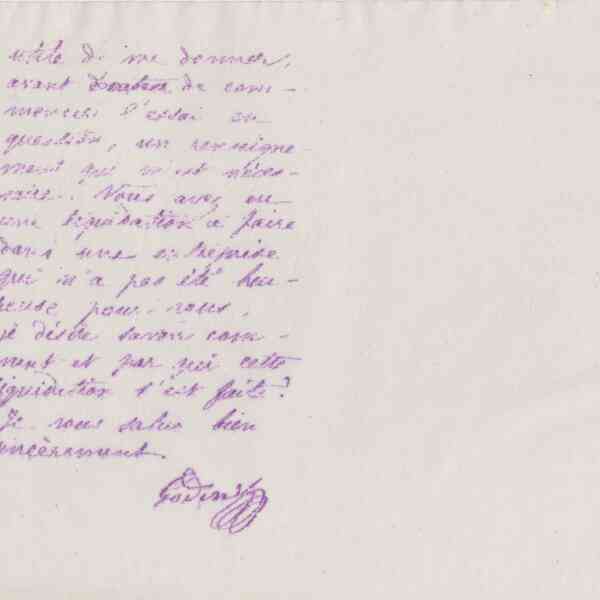 utile de me donner,
avant de com-
mencer l'essai en
question, un renseigne
ment qui m'est néces-
saire. Vous avez eu
une liquidation à faire
dans une entreprise
qui n'a pas été heu-
reuse pour vous,
je désire savoir com-
ment et par qui cette
liquidation s'est faite?
Je vous salue bien
sincèrement.
Godin